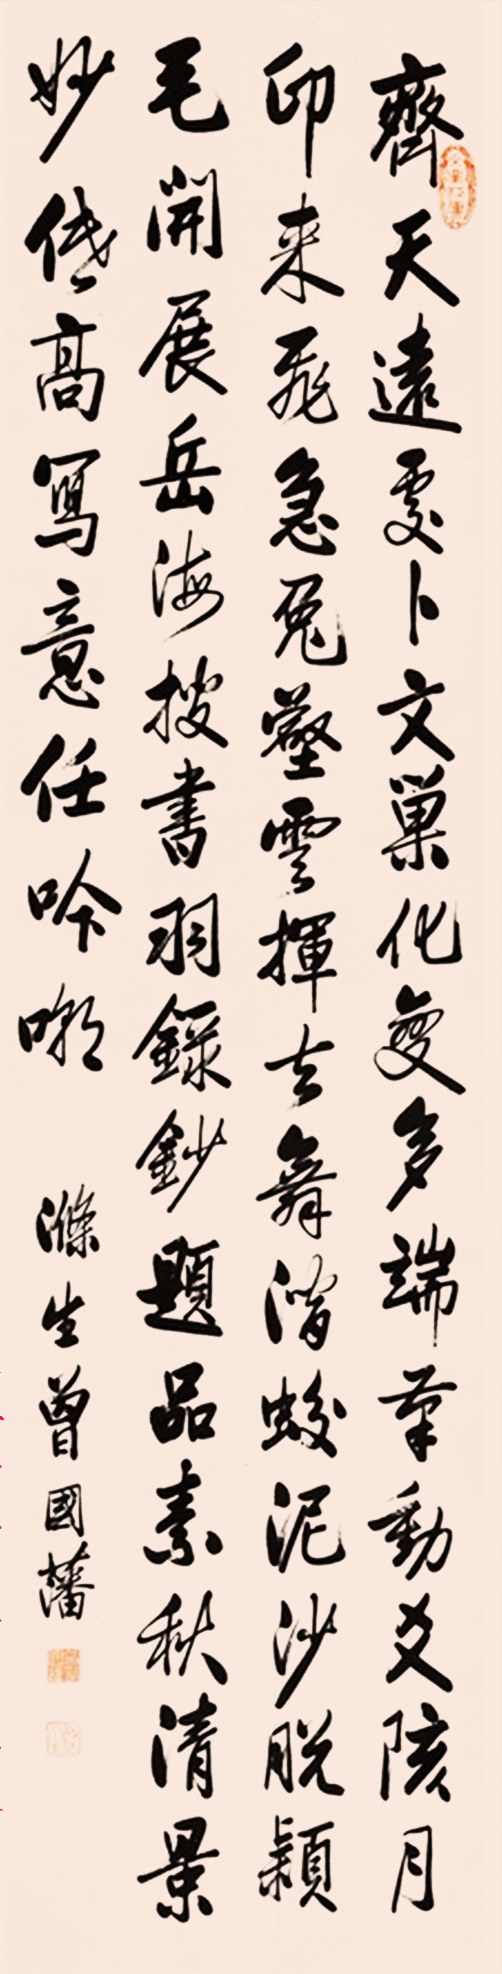 齊天遠處卜文巢化變多端筆動爻陔月
印来飛急兔壑雲揮去舞潛蛟泥沙脫穎
毛開展岳海搜書羽錄鈔題品素秋清景
妙傳高寫意任吟嘲
滌生曾國藩